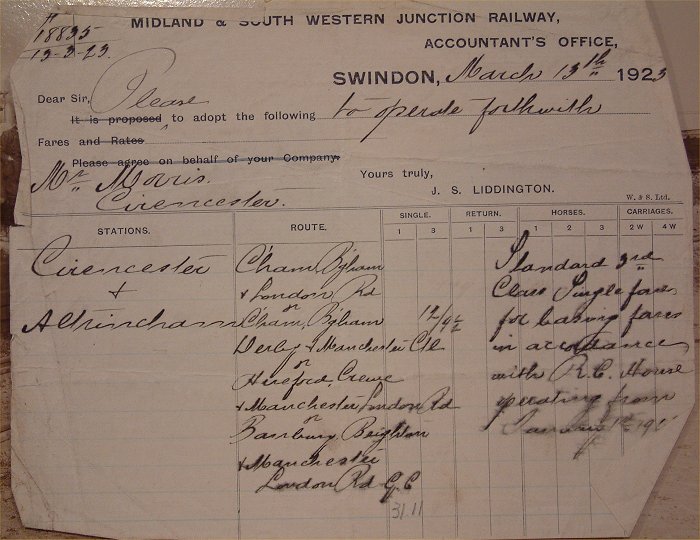 18835
13-3-23
MIDLAND & SOUTH WESTERN JUNCTION RAILWAY,
ACCOUNTANT'S OFFICE,
SWINDON, March 13th 1923
Dear Sir, Please
It is proposed to adopt the following to operate forthwith
Fares and Rates
Please agree on behalf of your Company.
Mr Morris.
Cirencester.
Yours truly,
J. S. LIDDINGTON.
W. & S. Ltd.
STATIONS. ROUTE. SINGLE. RETURN. HORSES. CARRIAGES.
1 3 1 3 1 2 3 2 W 4 W
Cirencester
&
Altrincham
Cham, Bgham
& London Rd
or
Cham, Bgham
Derby & Manchester Ctl
or
Hereford, Crewe
& Manchester London Rd
or
Banbury
& Manchester
London Rd G.C
31.11
12/9½
Standard 3rd
Class Single fares
for basing fares
in accordance
with R.C. House
operating from